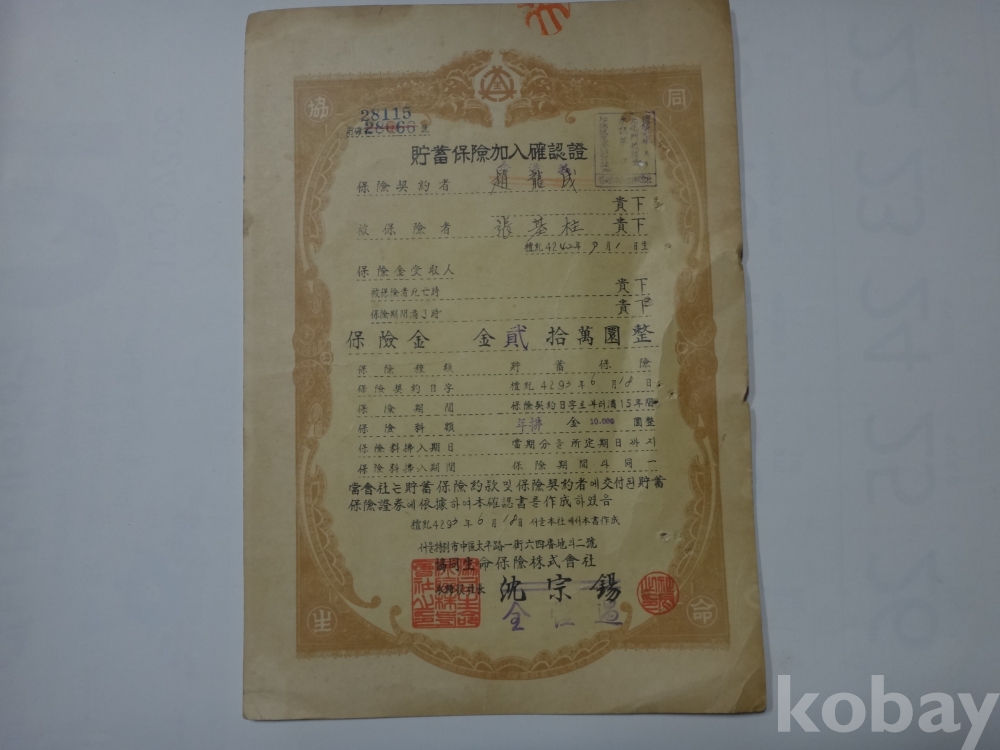 協 同
28115
28066
貯蓄保險加入確認證
保險契約者 趙龍
貴下
被保險者 張基柱 貴下
檀紀4242年9月1日生
保險金受取人
被保險者死亡時 貴下
保險期間滿了時 貴下
保險金 金貳拾萬圜整
保險種類 貯蓄保險
保險契約日字 檀紀4293年6月18日
保險期間 保險契約日字로부터滿15年間
保險料額 年拂 金10.000圜整
保險料拂入期日 當期分을所定期日까지
保險料拂入期間 保險期間과同一
當會社는貯蓄保險約款및保險契約者에交付된貯蓄
保險證券에依據하여本確認書를作成하였음
檀紀4293年6月18日 서울本社에서本書作成
서울特別市中區太平路一街六四番地의二號
協同生命保險株式會社
沈宗錫
生 命
kobay